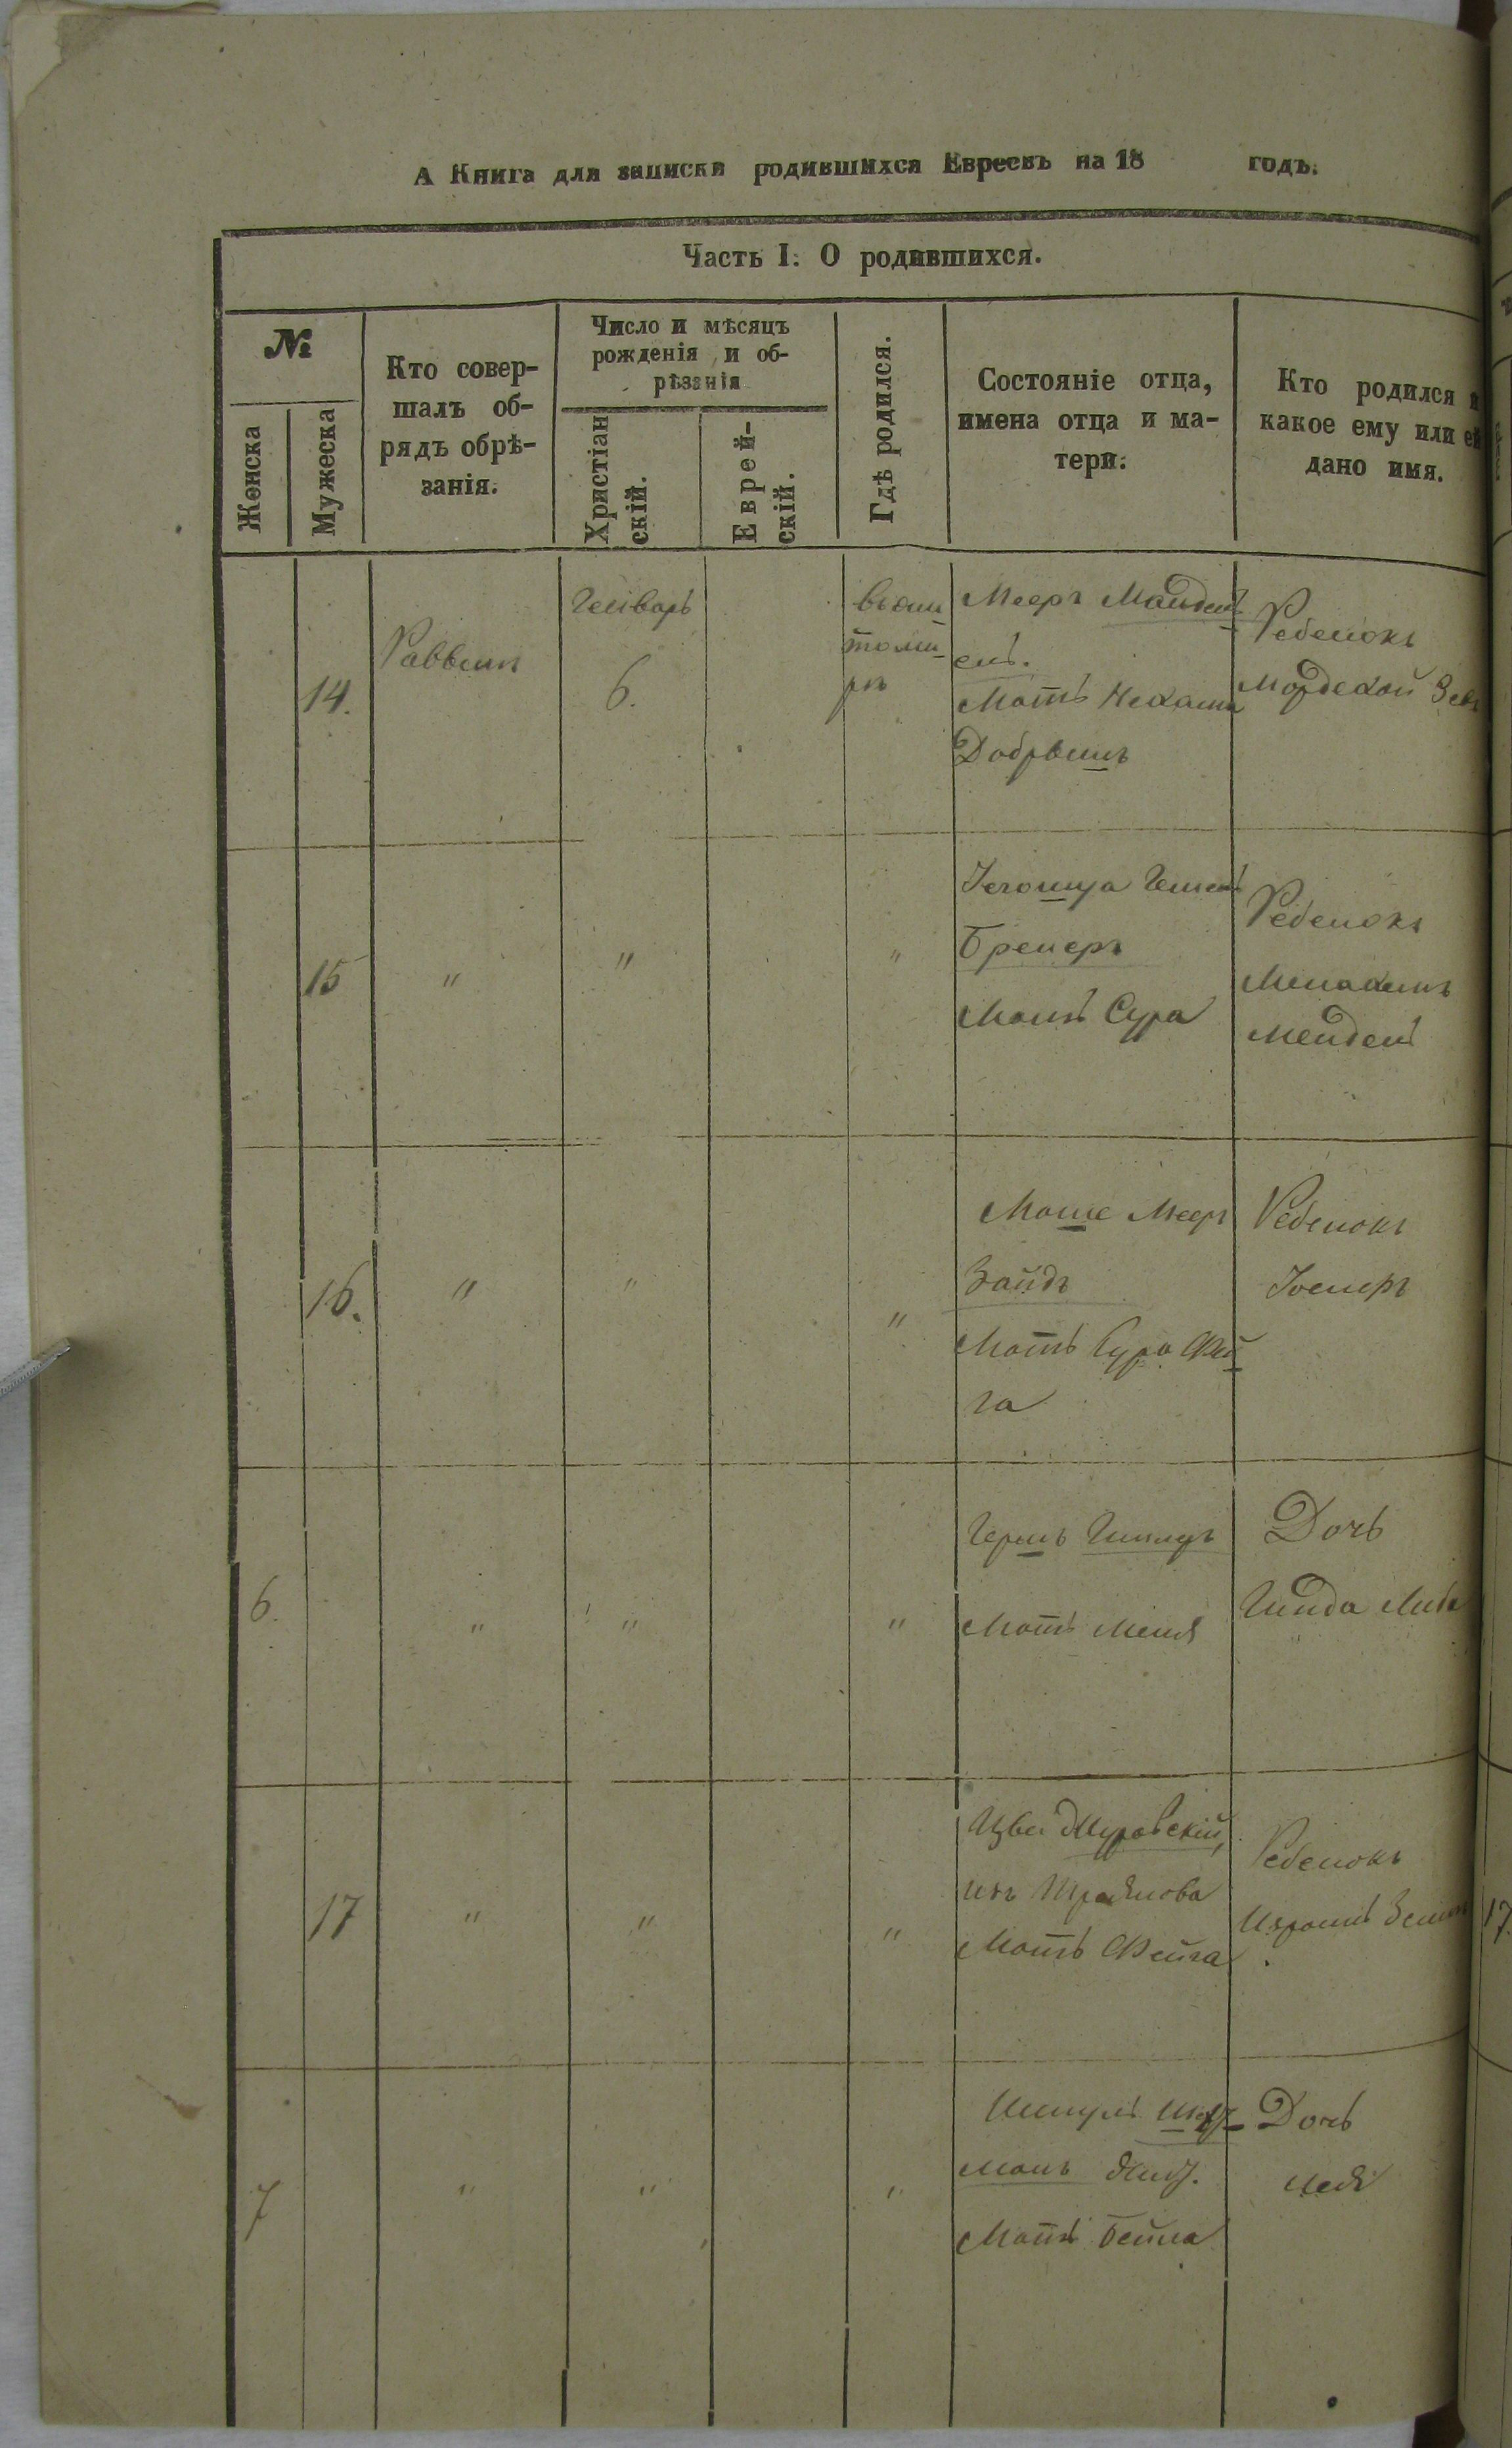 А Книга для записки родившихся Евреевъ на 18 годъ.
Часть I. О родившихся.
№
Женска
Мужеска
Кто совер-
шалъ об-
рядъ обрѣ-
занія.
Число и мѣсяцъ
рожденія и об-
рѣзанія
Христіан
скій.
Еврей-
скій.
Гдѣ родился.
Состояніе отца,
имена отца и ма-
тери.
Кто родился и
какое ему или ей
дано имя.
14.
Раввинъ
Генварь
6.
въ Жи-
томи-
рѣ
Мееръ
Мать Нехама
Добрышъ
Ребенокъ
Мордехай Зевъ
15
"
"
"
Бренеръ
Мать Сура
Ребенокъ
Менахемъ
Мендель
16.
"
"
"
Моше Мееръ
Зайдъ
Мать Сура Фей-
га
Ребенокъ
6.
"
"
"
Гершъ
Мать Меня
Дочь
Гинда Либа
17
"
"
"
изъ Троянова
Мать Фейга
Ребенокъ
Израиль
17
7
"
"
"
манъ
Мать Бейла
Дочь